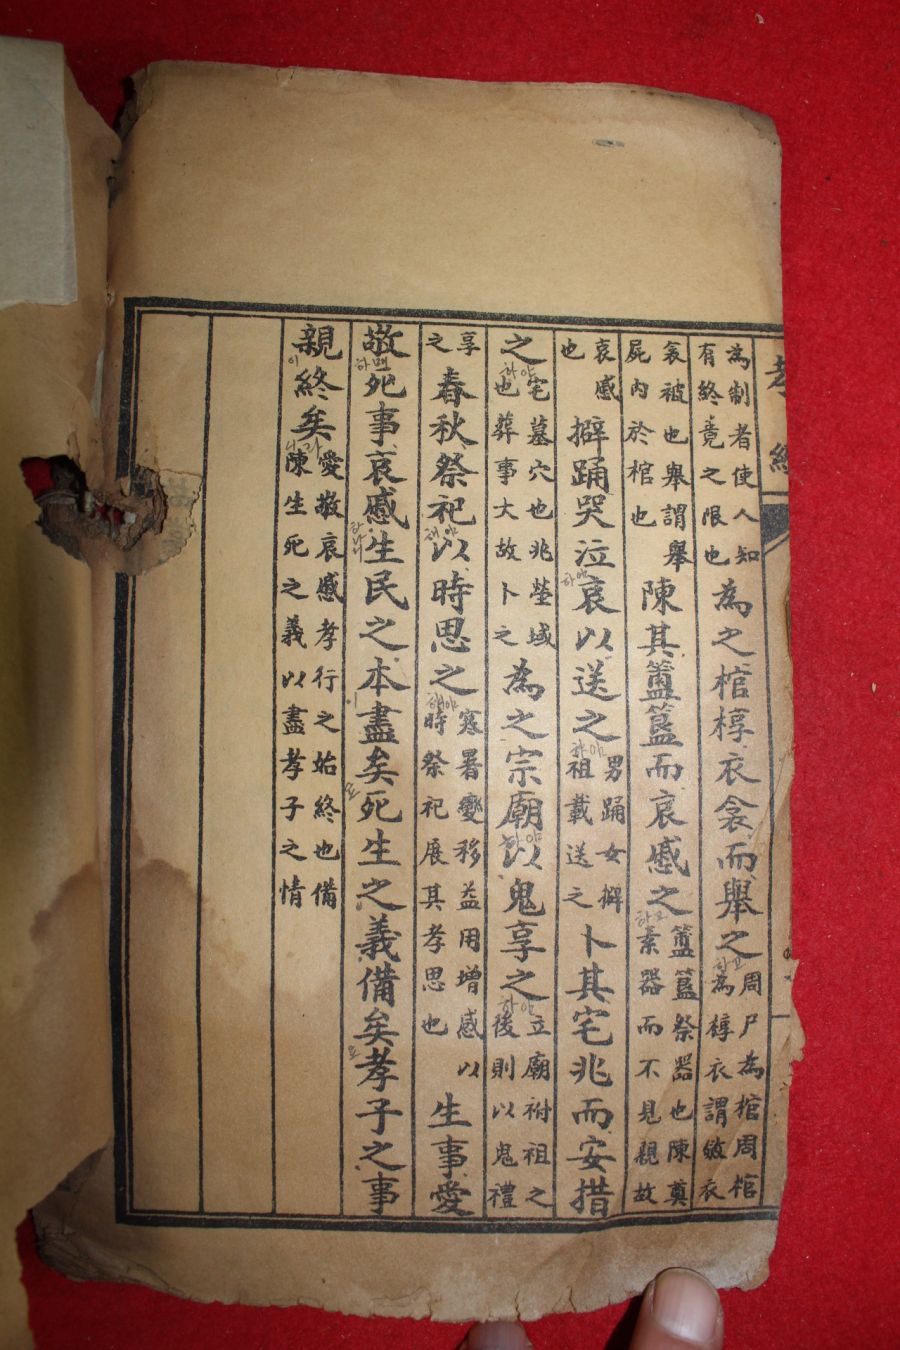 孝經
為制者使人知
有終竟之限也
為之棺椁衣衾而舉之하고
周尸為棺周棺
為椁衣謂斂衣
衾被也舉謂舉
屍內於棺也
陳其簠簋而哀慼之하고
簠簋祭器也陳奠
素器而不見親故
哀慼
也
擗踊哭泣하야哀以送之하야
男踊女擗
祖載送之
卜其宅兆而安措
之하야
宅墓穴也兆塋域
也葬事大故卜之
為之宗廟하야以鬼享之하야
立廟祔祖之
後則以鬼禮
享
之
春秋祭祀하야以時思之하야
寒暑變移益用增感以
時祭祀展其孝思也
生事愛
敬死事哀慼生民之本이盡矣오死生之義備矣오孝子之事
親이終矣니라
愛敬哀慼孝行之始終也備
陳生死之義以盡孝子之情